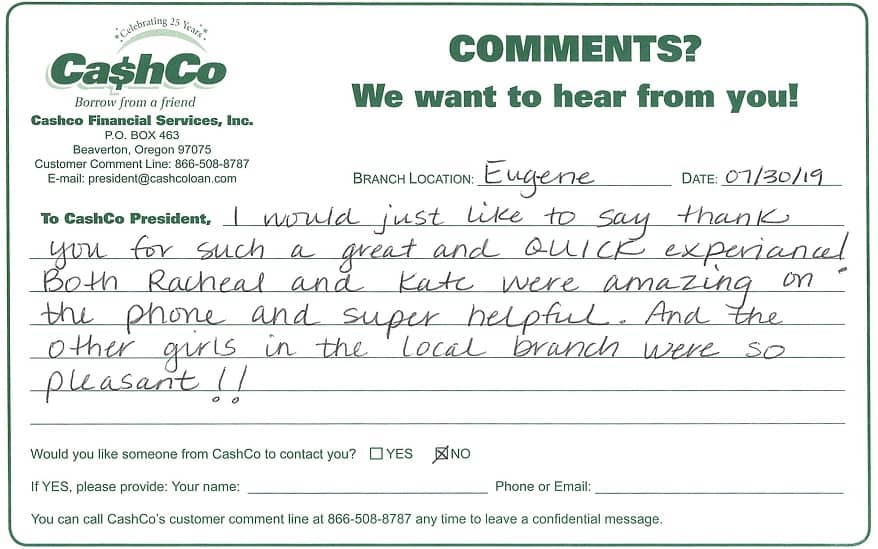 Celebrating 25 Years
Ca$hCo
Borrow from a friend
Cashco Financial Services, Inc.
P.O. BOX 463
Beaverton, Oregon 97075
Customer Comment Line: 866-508-8787
E-mail: president@cashcoloan.com
COMMENTS?
We want to hear from you!
BRANCH LOCATION: Eugene DATE: 07/30/19
To CashCo President, I would just like to say thank
you for such a great and QUICK experiance!
Both Racheal and Kate were amazing on
the phone and super helpful. And the
other girls in the local branch were so
pleasant!!
Would you like someone from CashCo to contact you? ☐ YES ☒ NO
If YES, please provide: Your name: Phone or Email:
You can call CashCo's customer comment line at 866-508-8787 any time to leave a confidential message.